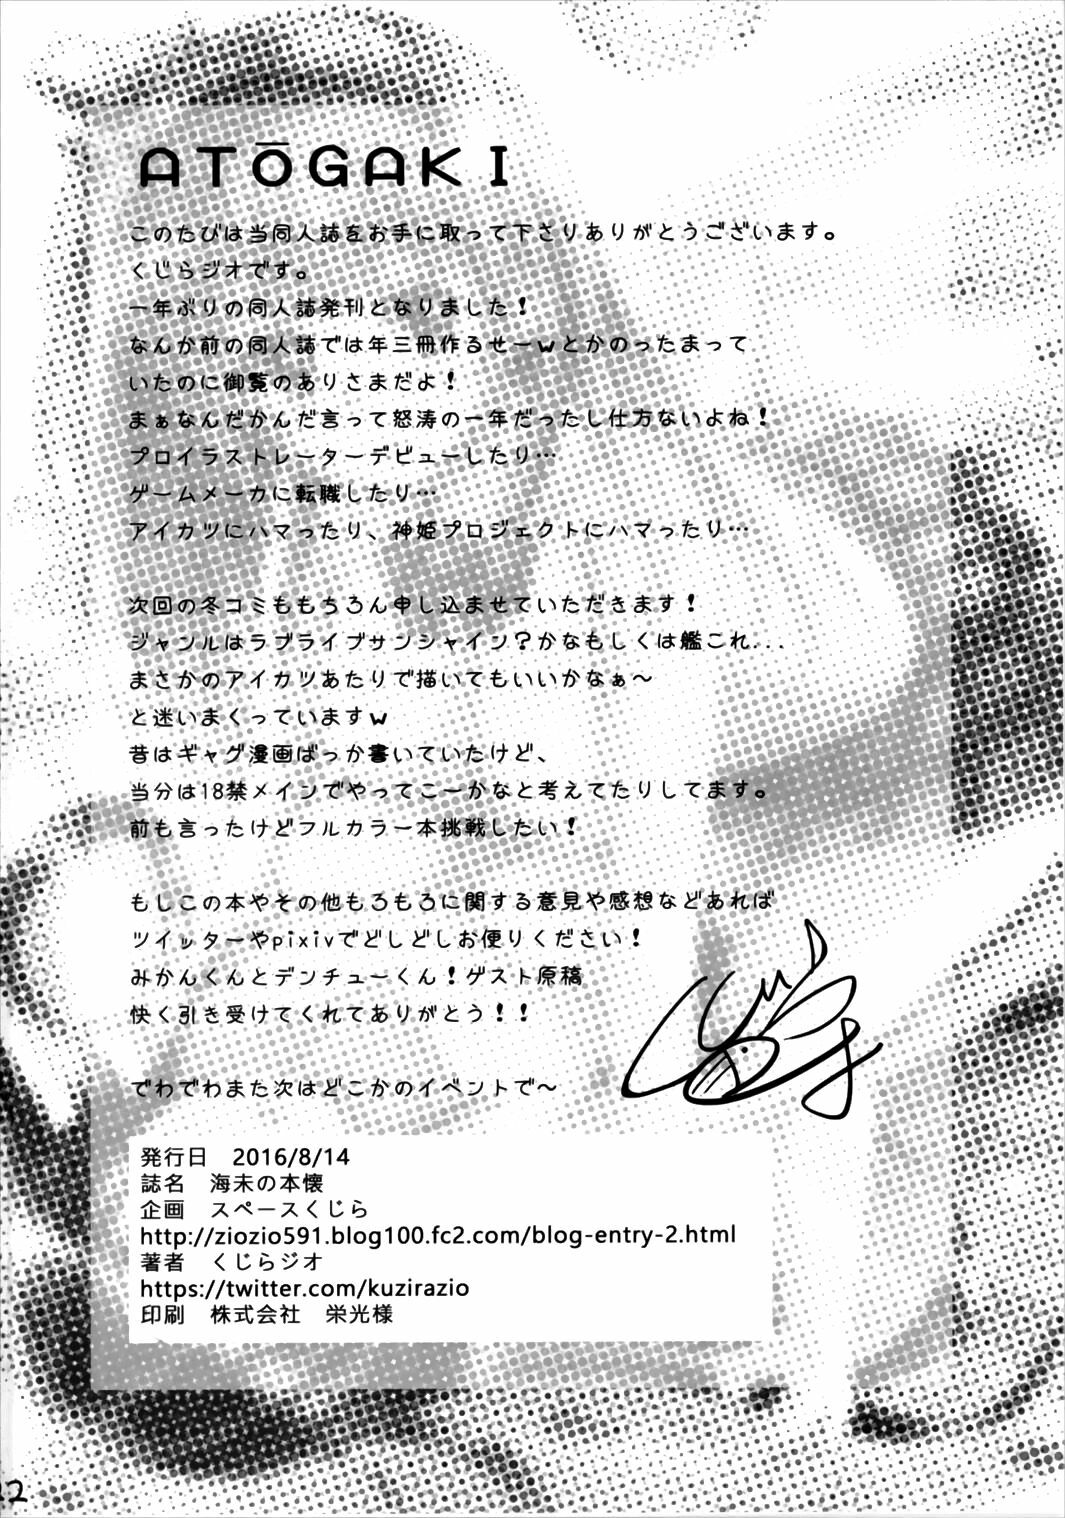 ATŌGAKI
このたびは当同人誌をお手に取って下さりありがとうございます。
くじらジオです。
一年ぶりの同人誌発刊となりました！
なんか前の同人誌では年三冊作るせーwとかのったまって
いたのに御覧のありさまだよ！
まぁなんだかんだ言って怒涛の一年だったし仕方ないよね！
プロイラストレーターデビューしたり…
ゲームメーカに転職したり…
アイカツにハマったり、神姫プロジェクトにハマったり…
次回の冬コミももちろん申し込ませていただきます！
ジャンルはラブライブサンシャイン？かなもしくは艦これ...
まさかのアイカツあたりで描いてもいいかなぁ〜
と迷いまくっていますw
昔はギャグ漫画ばっか書いていたけど、
当分は18禁メインでやってこーかなと考えてたりしてます。
前も言ったけどフルカラー本挑戦したい！
もしこの本やその他もろもろに関する意見や感想などあれば
ツイッターやpixivでどしどしお便りください！
みかんくんとデンチューくん！ゲスト原稿
快く引き受けてくれてありがとう！！
でわでわまた次はどこかのイベントで〜
発行日　2016/8/14
誌名　海未の本懐
企画　スペースくじら
http://ziozio591.blog100.fc2.com/blog-entry-2.html
著者　くじらジオ
https://twitter.com/kuzirazio
印刷　株式会社　栄光様
22